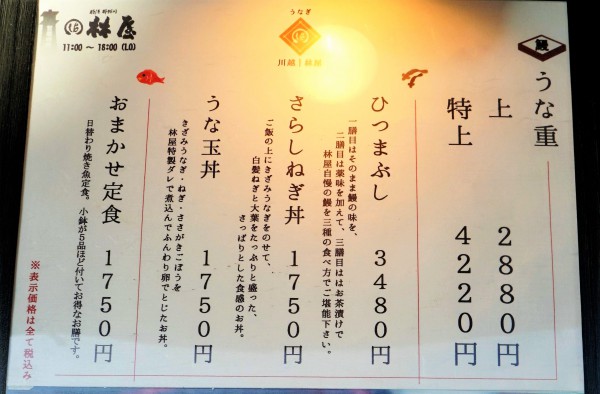 鰻
うな重
上 2880円
特上 4220円
ひつまぶし 3480円
一膳目はそのまま鰻の味を、
二膳目は薬味を加えて、三膳目はお茶漬けで
林屋自慢の鰻を三種の食べ方でご堪能下さい。
うなぎ
川越
さらしねぎ丼 1750円
ご飯の上にきざみうなぎをのせて、
白髪ねぎと大葉をたっぷりと盛った、
さっぱりとした食感のお丼。
うな玉丼 1750円
きざみうなぎ・ねぎ・ささがきごぼうを
林屋特製ダレで煮込んでふんわり卵でとじたお丼。
おまかせ定食 1750円
日替わり焼き魚定食。小鉢が5品ほど付いてお得なお膳です。
林屋
11:00～18:00(LO)
※表示価格は全て税込み